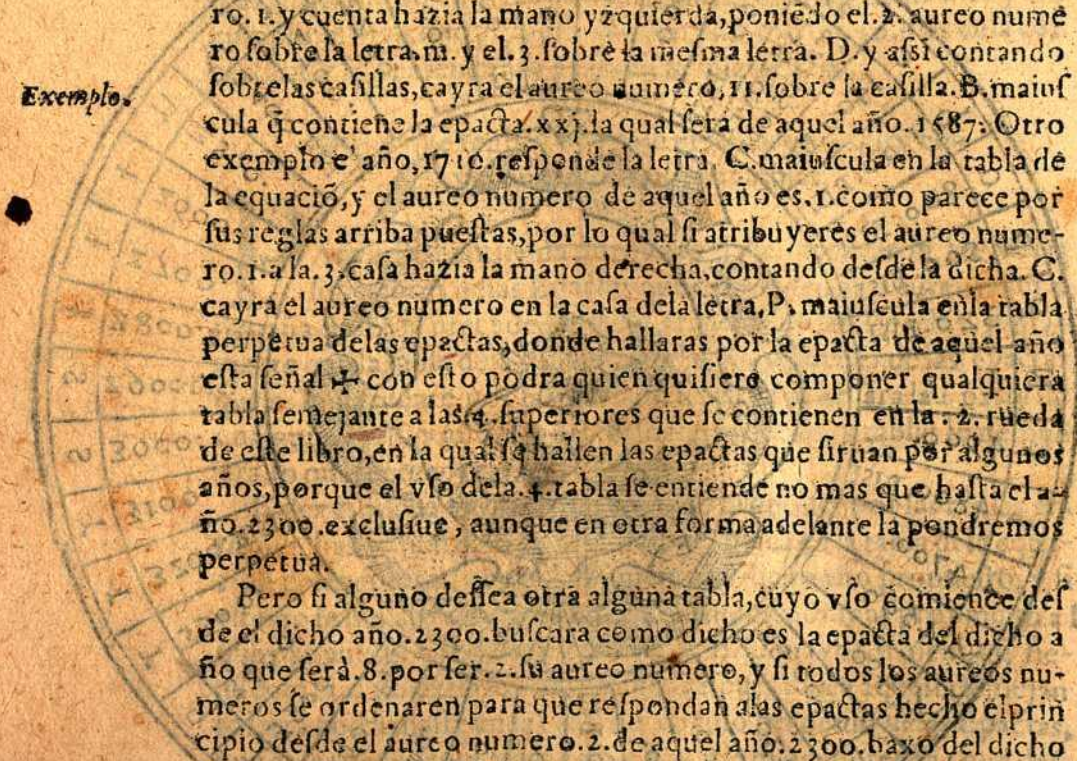 ro. 1. y cuenta hazia la mano yzquierda, poniẽdo el. 2. aureo nume
ro sobre la letra. m. y el. 3. sobre la mesma letra. D. y assi contando
Exemplo.
sobre las casillas, cayra el aureo numero, 11. sobre la casilla. B. maiuſ
cula q̃ contiene la epacta. xxj. la qual ſera de aquel año. 1587: Otro
exemplo e' año, 1710. reſponde la letra. C. maiuſcula en la tabla de
la equaciõ, y el aureo numero de aquel año es. 1. como parece por
ſus reglas arriba pueſtas, por lo qual ſi atribuyeres el aureo nume-
ro. 1. a la. 3. caſa hazia la mano derecha, contando deſde la dicha. C.
cayra el aureo numero en la caſa dela letra, P. maiuſcula enla tabla
perpetua delas epactas, donde hallaras por la epacta de aquel año
eſta ſeñal ✠ con eſto podra quien quiſiere componer qualquiera
tabla ſemejante a las. 4. ſuperiores que ſe contienen en la. 2. rueda
de eſte libro, en la qual ſe hallen las epactas que ſiruan por algunos
años, porque el vſo dela. 4. tabla ſe entiende no mas que haſta el a-
ño. 2300. excluſiue, aunque en otra forma adelante la pondremos
perpetua.
Pero ſi alguno deſſea otra alguna tabla, cuyo vſo comience deſ
de el dicho año. 2300. buſcara como dicho es la epacta del dicho a
ño que ſerà. 8. por ſer. 2. ſu aureo numero, y ſi todos los aureos nu-
meros ſe ordenaren para que reſpondan alas epactas hecho elprin
cipio deſde el aureo numero. 2. de aquel año. 2300. baxo del dicho